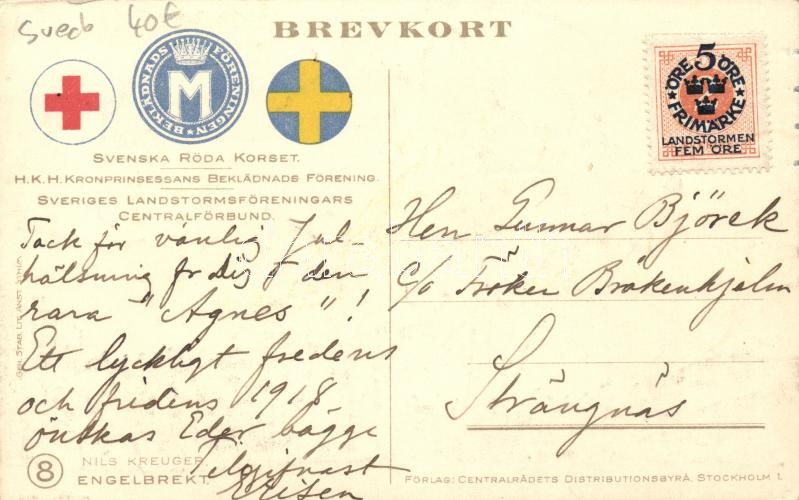 Sveb 40€
BREVKORT
BEKLÄDNADS FÖRENINGEN
M
5
ÖRE ÖRE
FRIMÄRKE
LANDSTORMEN
FEM ÖRE
SVENSKA RÖDA KORSET.
H.K.H. KRONPRINSESSANS BEKLÄDNADS FÖRENING.
SVERIGES LANDSTORMSFÖRENINGARS
CENTRALFÖRBUND.
Tack för vänlig Jul-
hälsning fr dig o den
rara "Agnes"!
Ett lyckligt fredens
och fridens 1918
önskas Eder bägge
Tillgifnast
Herr Gunnar Björck
c/o Fröken Bråkenhjelm
Strängnäs
GEN. STAB. LIT. ANST. STHLM
8
NILS KREUGER
ENGELBREKT.
FÖRLAG: CENTRALRÅDETS DISTRIBUTIONSBYRÅ, STOCKHOLM 1.